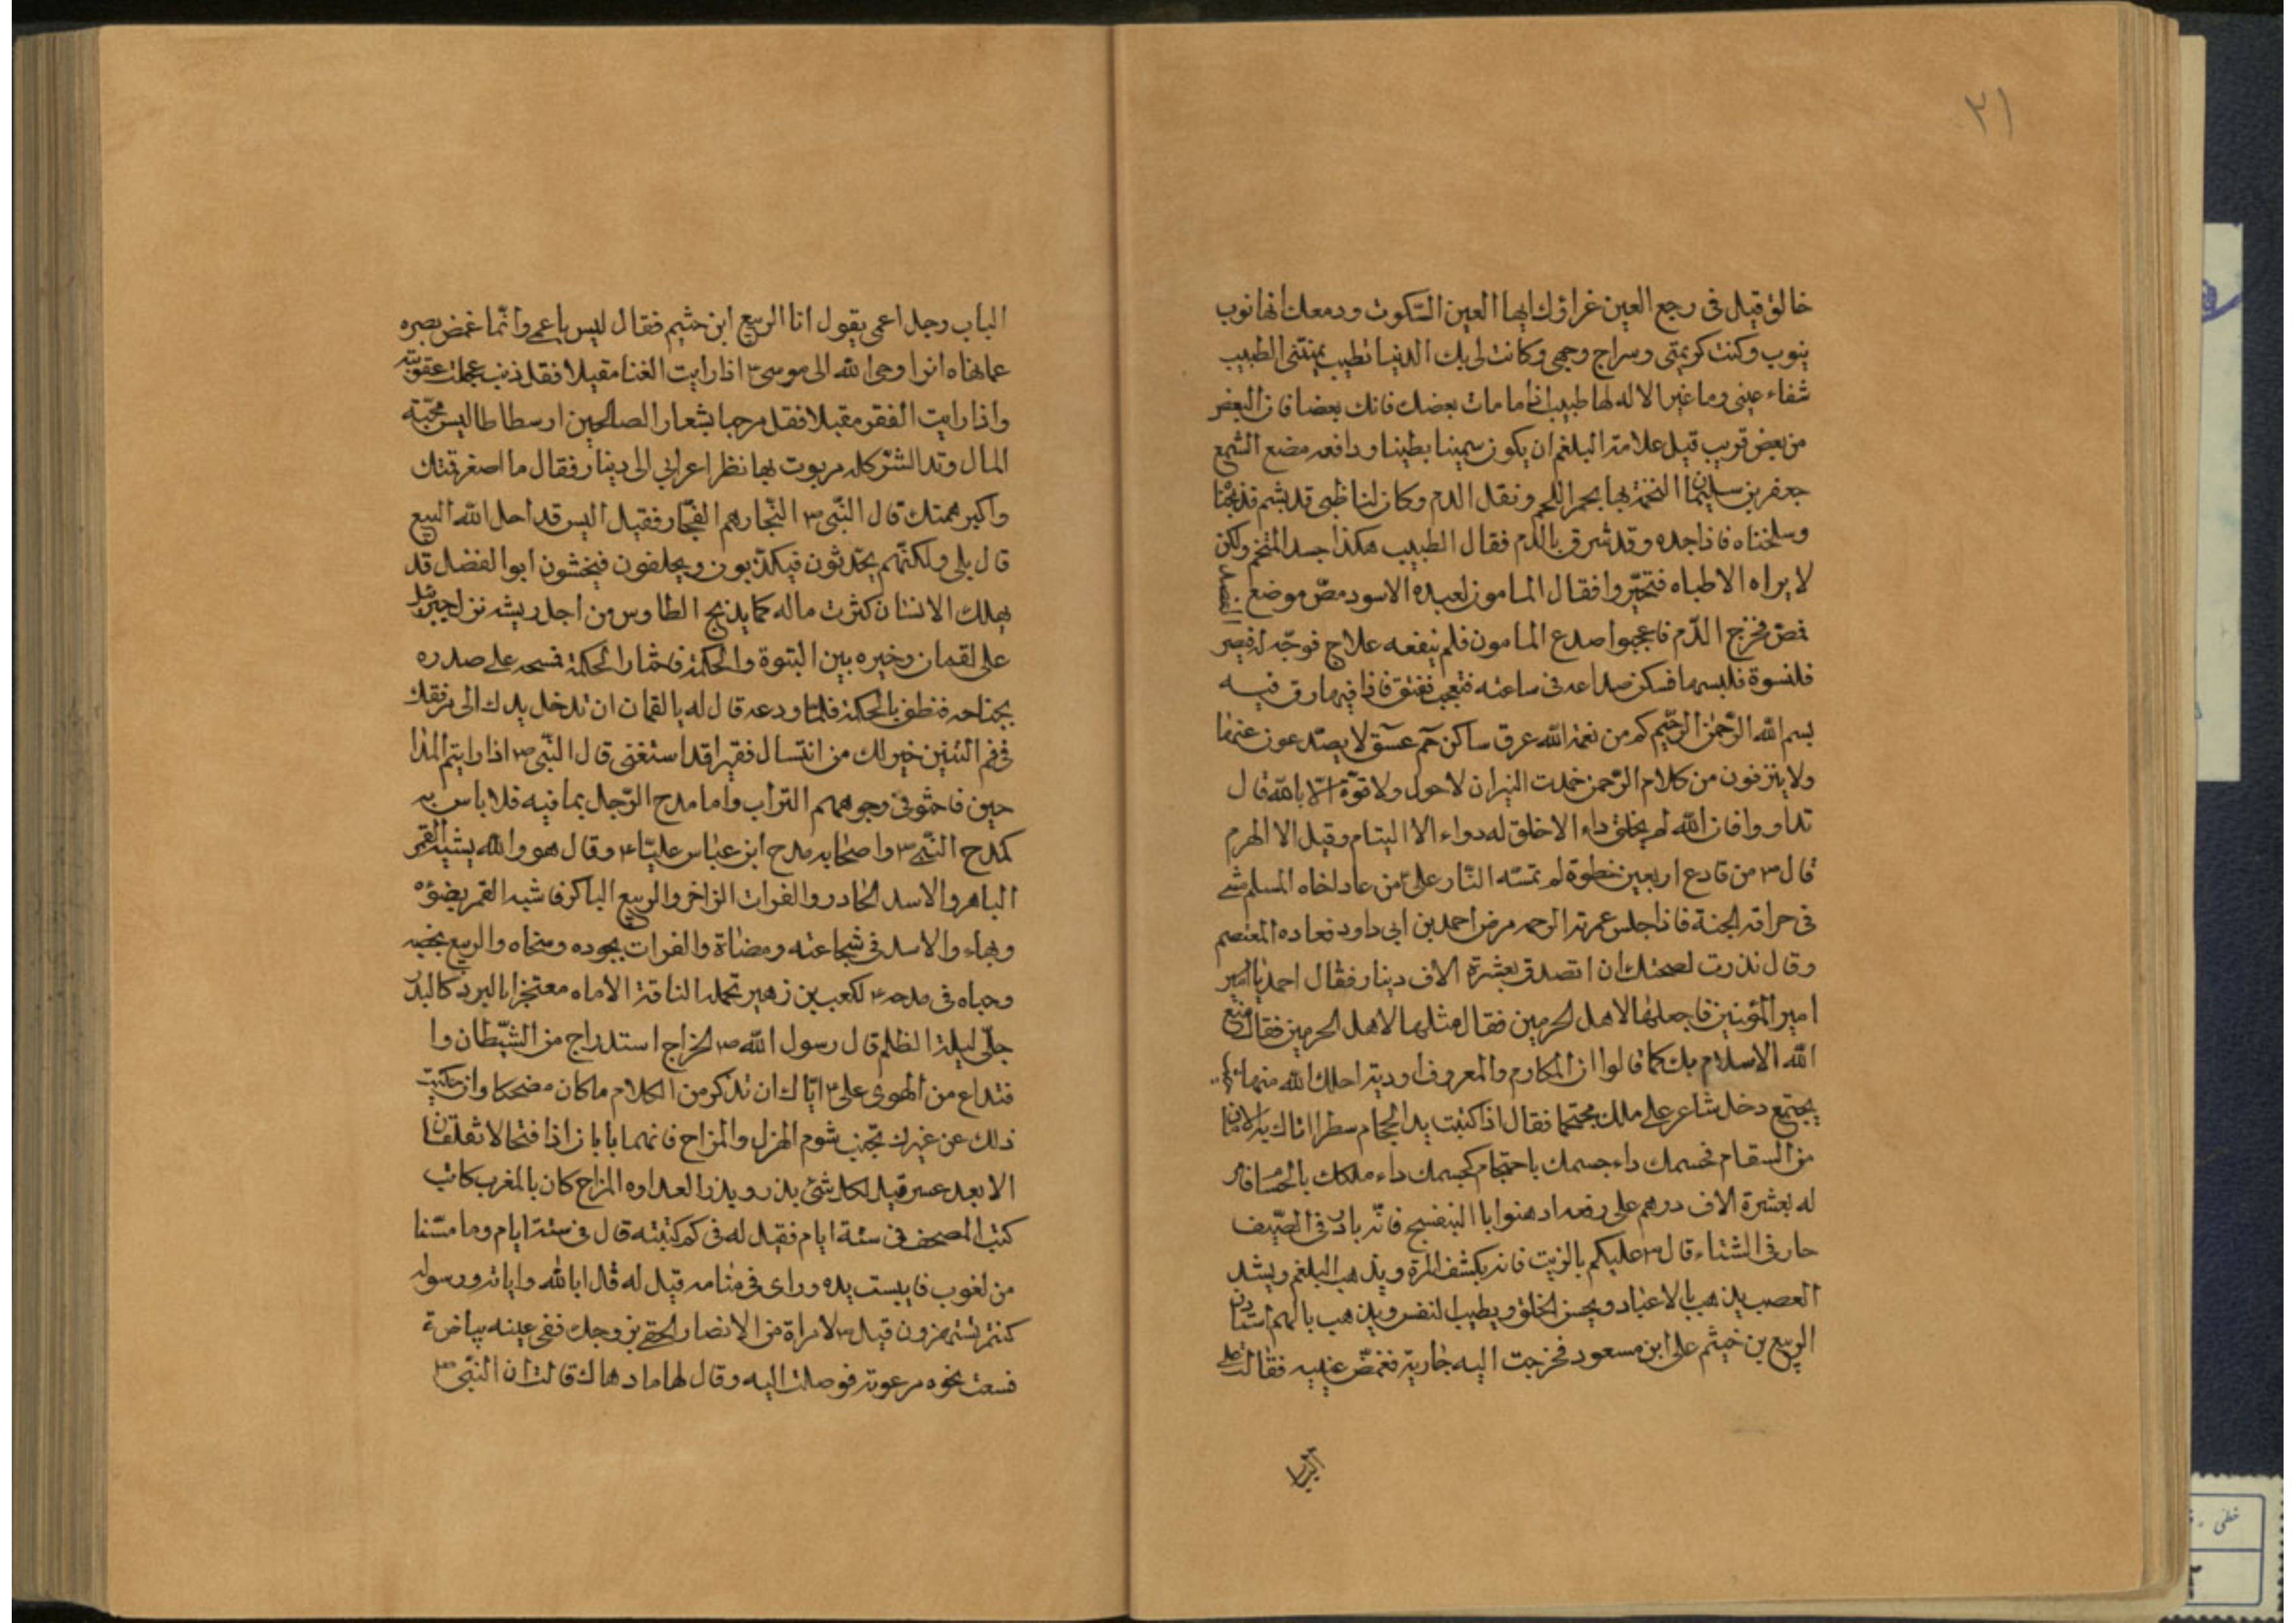 ٢١
خالق قيل في رجع العين غراؤك ايها العين السكوت ودمعك انها نوب
ينوب وكنت كريمتي وسراج وجهي وكانت لي بك الدنيا تطيب يمنتنى الطبيب
شفاء عيني وما غير الاله لها طبيب اذا ما مات بعضك فابك بعضا فان البعض
من بعض قريب قيل علامة البلغم ان يكون سمينا بطينا ودافعه مضع الشمع
جعفر بن سليمان النخمة بها يحمر اللحم ونقل الدم وكان لنا ظبى قد بشم فذبحنا
وسلخناه فاذا جده وقد شرق بالدم فقال الطبيب هكذا جسد المتخم ولكن
لا يراه الاطباء فتحيروا فقال المامون لعبده الاسود مص موضع الفصد
فمص فخرج الدم فاعجبوا صدع المامون فلم ينفعه علاج فوجه له قيصر
قلنسوة فلبسها فسكن صداعه في ساعته فتعجب ففتق فاذا فيها رق فيه
بسم الله الرحمن الرحيم كم من نعمة الله عرق ساكن حم عسق لا يصدعون عنها
ولا ينزفون من كلام الرحمن خمدت النيران لا حول ولا قوة الا بالله قال
تداووا فان الله لم يخلق داء الا خلق له دواء الا السام وقيل الا الهرم
قال ص من قاد ع اربعين خطوة لم تمسه النار على ع من عاد اخاه المسلم مشى
في خرافة الجنة فاذا جلس غمرته الرحمه مرض احمد بن ابي داود فعاده المعتصم
وقال نذرت لصحتك ان اتصدق بعشرة الاف دينار فقال احمد يا امير
امير المؤمنين فاجعلها لاهل الحرمين فقال مثلها لاهل الحرمين فقال متع
الله الاسلام بك كما قالوا ان المكارم والمعروف اودية احلك الله منها
يجتمع دخل شاعر على ملك محتجما فقال اذا كتبت يد الحجام سطرا اتاك به الامان
من السقام فحسمك داء جسمك باحتجام كحسمك داء ملكك بالحسام فامر
له بعشرة الاف درهم على رفعه ادهنوا با البنفسج فانه بارد في الصيف
حار في الشتاء قال ص عليكم بالزيت فانه يكشف المرة ويذهب البلغم ويشد
العصب يذهب بالاعياد ويحسن الخلق ويطيب النفس ويذهب بالهم استاذن
الربيع بن خيثم على ابن مسعود فخرجت اليه جارية فغمض عينيه فقالت على
الباب رجل اعمى يقول انا الربيع ابن خثيم فقال ليس باعمى وانما غمض بصره
عما نهاه انرا وحى الله الى موسى ع اذا رايت الغنا مقبلا فقل ذنب عجلت عقوبته
واذا رايت الفقر مقبلا فقل مرحبا بشعار الصالحين ارسطاطاليس محبة
المال وتد الشر كله مربوت بها نظر اعرابي الى دينار فقال ما اصغر قمتك
واكبر همتك قال النبي ص التجار هم الفجار فقيل اليس قد احل الله البيع
قال بلى ولكنهم يحدثون فيكذبون ويحلفون فيخشون ابو الفضل قد
يهلك الانسان كثرت ماله كما يذبح الطاوس من اجل ريشه نزل جبرئيل
على لقمان وخيره بين النبوة والحكمة فاختار الحكمة فسحه على صدره
بجناحه فنطق بالحكمة فلما ودعه قال له يا لقمان ان تدخل يدك الى مرفقك
في فم التنين خير لك من ان تسال فقيرا قد استغنى قال النبي ص اذا رايتم المدا
حين فاحثو في وجوههم التراب واما مدح الرجل بما فيه فلا باس به
كمدح النبي ص واصحابه مدح ابن عباس عليا ع وقال هو والله يشبه القمر
الباهر والاسد الخادر والفرات الزاخر والربيع الباكر فاشبه القمر بضوئه
وبهاء والاسد في شجاعته ومضاة والفرات بجوده وسخاه والربيع بخصبه
وحياه في مدحه ع لكعب بن زهير تحمله الناقة الاماه معتجزا بالبرد كالبدر
جلى ليلة الظلم قال رسول الله ص الخراج استدراج من الشيطان وا
فتداع من الهوى على ع اياك ان تذكر من الكلام ما كان مضحكا وان حكيت
ذلك عن غيرك تجنب شوم الهزل والمزاح فانهما بابان اذا فتحا لا تغلقان
الا بعد عسر قيل لكل شئ بذر وبذر العداوه المزاح كان بالمغرب كاتب
كتب المصحف في ستة ايام فقيل له في كم كتبته قال في ستة ايام وما مسنا
من لغوب فايبست يده وراى في منامه قيل له قل ابالله واياته ورسوله
كنتم تستهزون قيل ص لامراة من الانصار الحقى بزوجك ففي عينه بياض ة
فسعت نحوه مرعوبة فوصلت اليه وقال لها ما دهاك قالت ان النبي ص